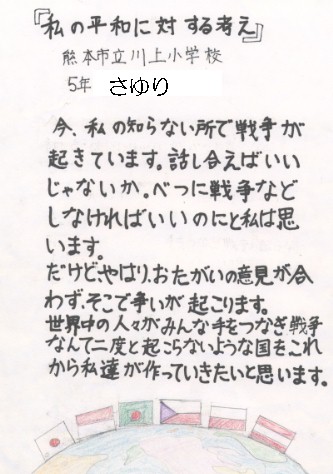 『私の平和に対する考え』
熊本市立川上小学校
5年 さゆり
今、私の知らない所で戦争が
起きています。話し合えばいい
じゃないか。べつに戦争など
しなければいいのにと私は思
います。
だけど、やはり、おたがいの意見が合
わず、そこで争いが起こります。
世界中の人々がみんな手をつなぎ戦争
なんて二度と起こらないような国をこれ
から私達が作っていきたいと思います。